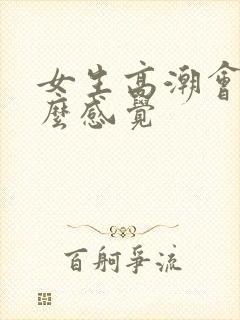 女生高潮會
麼感覺
百舸爭流